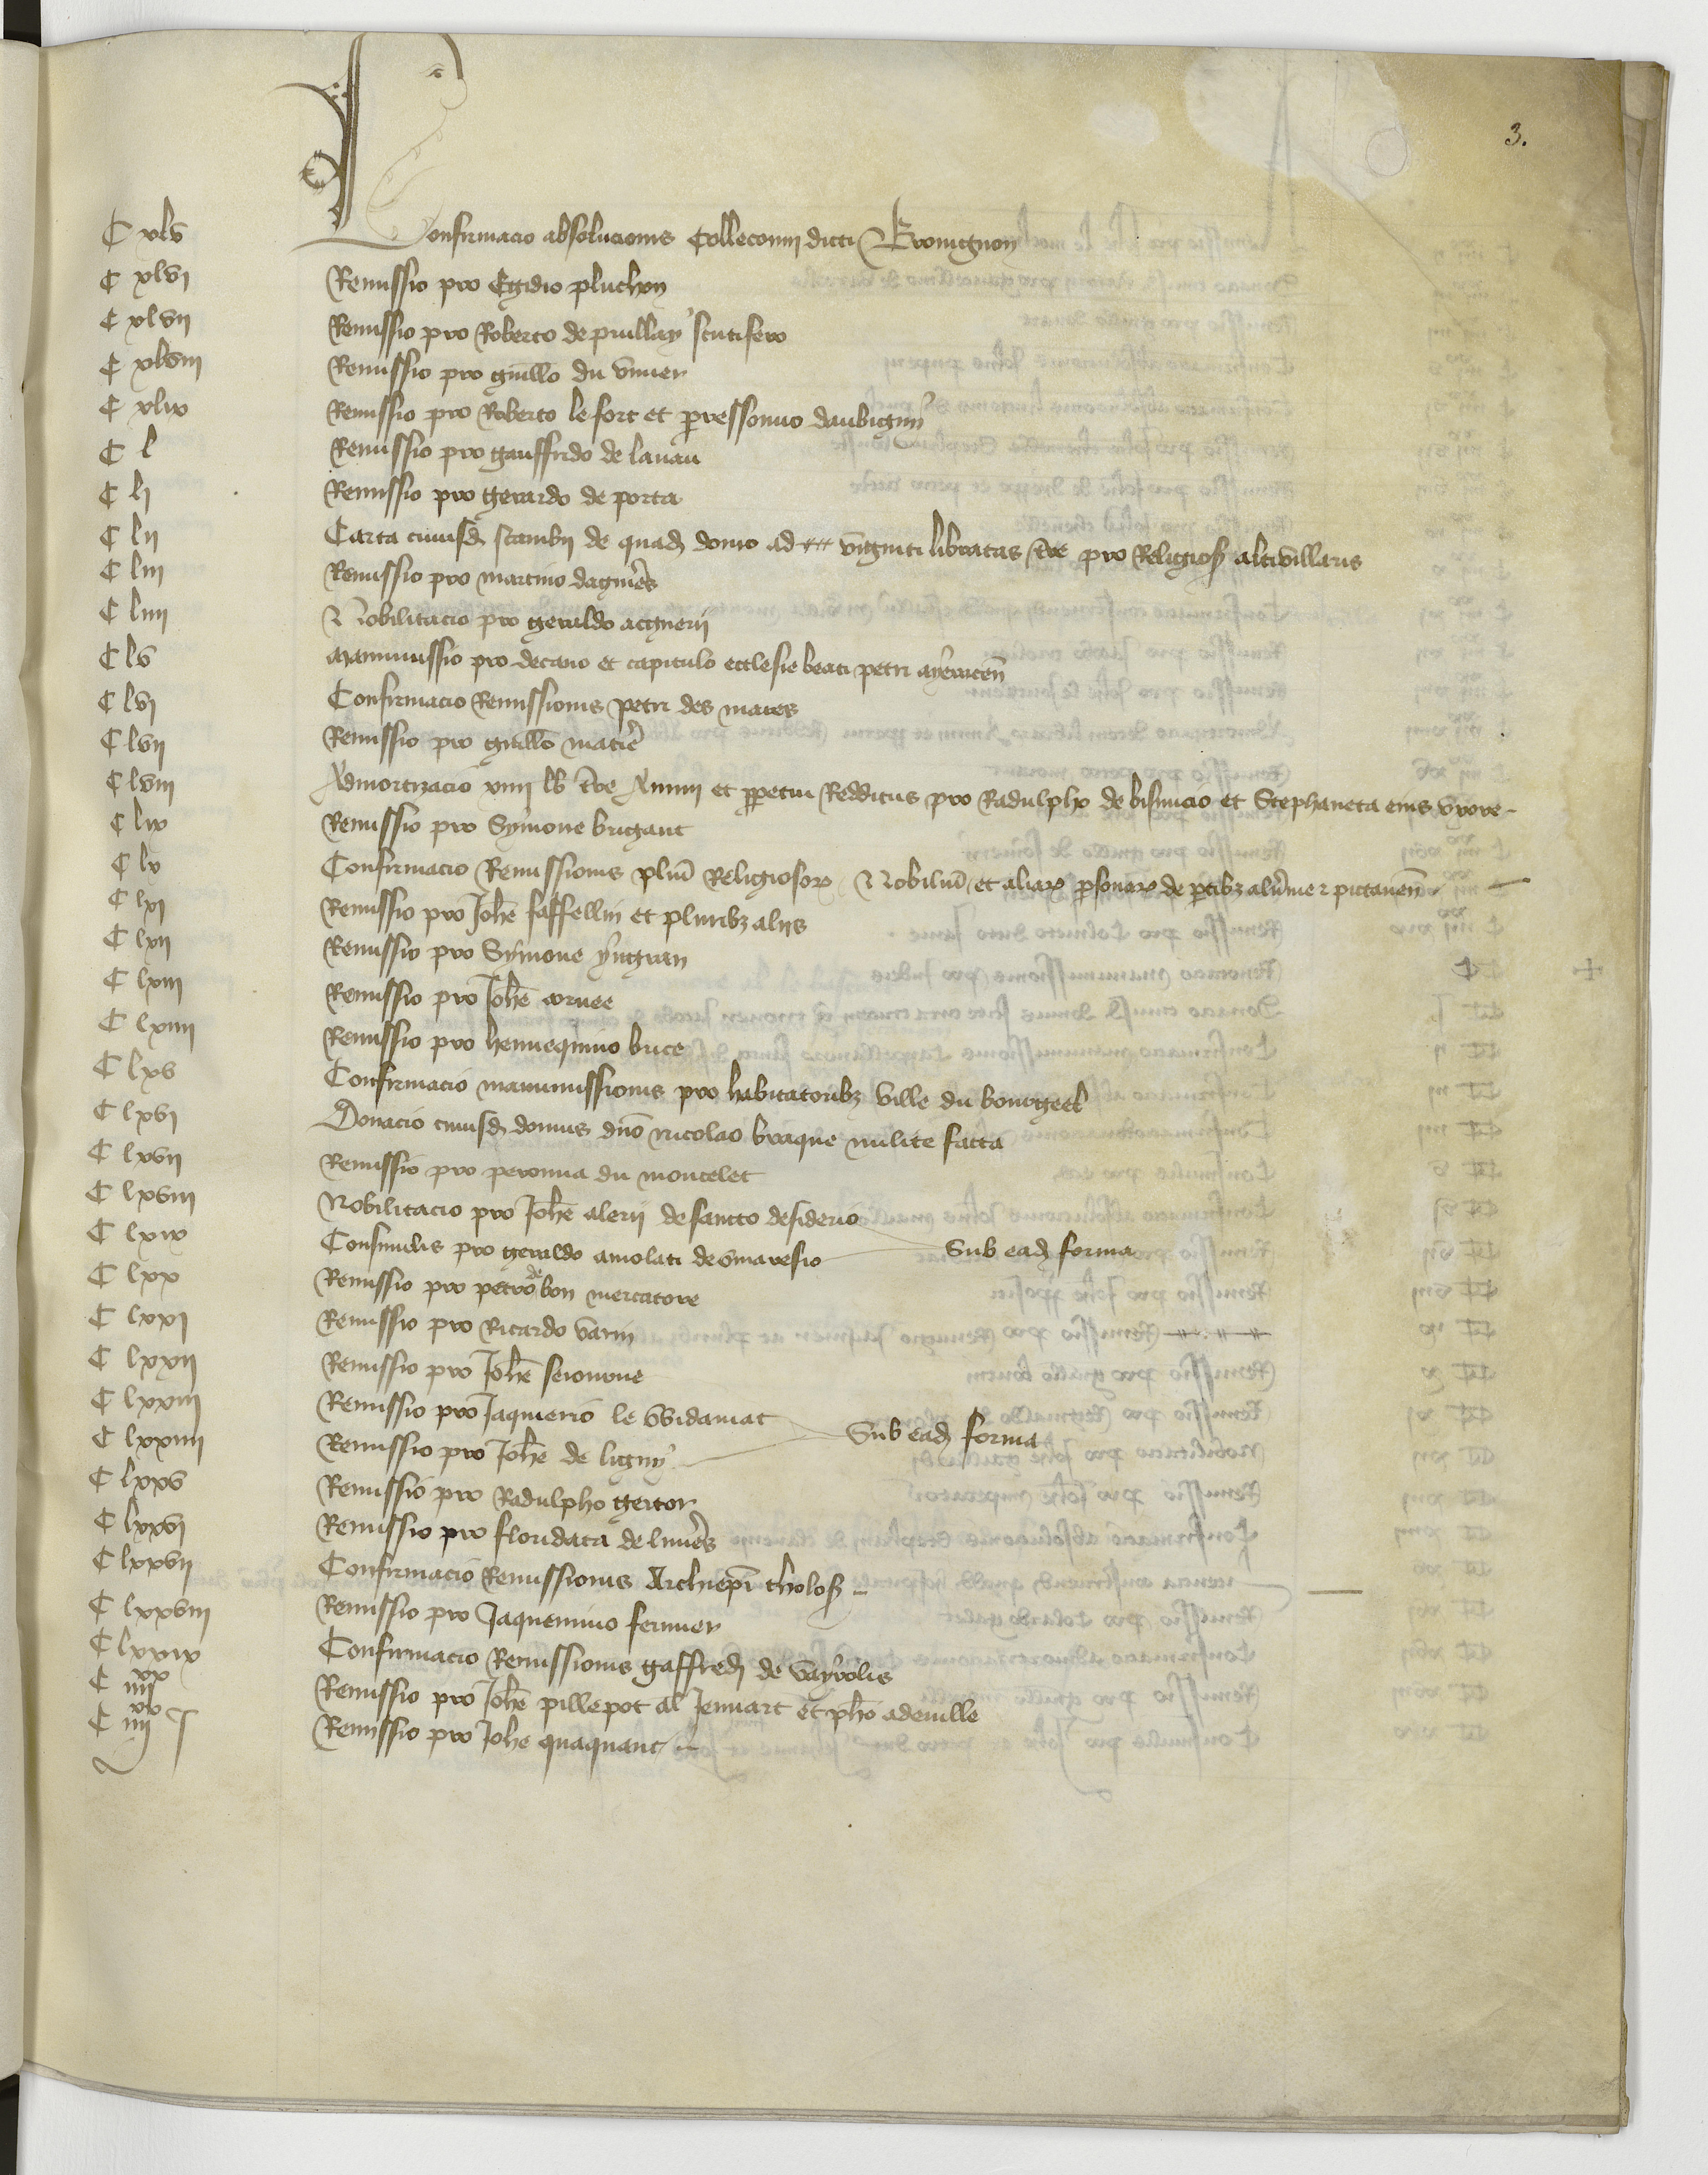 3.
C xlv Confirmacio absolucionis Colleconni dicti Bronignon
C xlvi Remissio pro Egidio pluchon
C xlvii Remissio pro Roberto de pruillay scutifero
C xlviii Remissio pro guillo du vivier
C xlix Remissio pro Roberto le fort et perressonno daubigny
C l Remissio pro gauffrido de lavau
C li Remissio pro gerardo de porta
C lii Carta cuiusd scambii de quad domo ad viginti libratas tre pro Religios altivillaris
C liii Remissio pro martino dagnieres
C liiii Nobilitacio pro geraldo acguerii
C lv Manumissio pro decano et capitulo ecclesie beati petri ayeracen
C lvi Confirmacio Remissionis petri des mares
C lvii Remissio pro guillo matire
C lviii Admortizacio xiiii lb tre Annui et ppetui Redditus pro Radulpho de bisuncio et Stephaneta eius uxore
C lix Remissio pro Symone brigant
C lx Confirmacio Remissionis plium Religiosor Nobilium et aliar psonar de ptibz alvernie z pictaven
C lxi Remissio pro Johe faffellin et pluribz aliis
C lxii Remissio pro Symone yngran
C lxiii Remissio pro Johe cornee
C lxiiii Remissio pro hennequino brice
C lxv Confirmacio manumissionis pro habitatoribz ville du bourgeel
C lxvi Donacio cuiusd domus dno Nicolao braque milite facta
C lxvii Remissio pro peronna du moncelet
C lxviii Nobilitacio pro Johe alerii de sancto desiderio
C lxix Consimilis pro geraldo amolati de vinaresio Sub ead forma
C lxx Remissio pro petro de bon mercatore
C lxxi Remissio pro Ricardo varin
C lxxii Remissio pro Johe seionone
C lxxiii Remissio pro Jaquierio le vvidamat
C lxxiiii Remissio pro Johe de ligny Sub ead forma
C lxxv Remissio pro Radulpho gertor
C lxxvi Remissio pro floridata de linieres
C lxxvii Confirmacio Remissionis Archiepi tholos
C lxxviii Remissio pro Jaquemino fermier
C lxxix Confirmacio Remissionis gaffred de vayrolis
C iiii xx Remissio pro Johe pillepot al Jenuart et pho adeville
C iiii xx I Remissio pro Johe quaquant